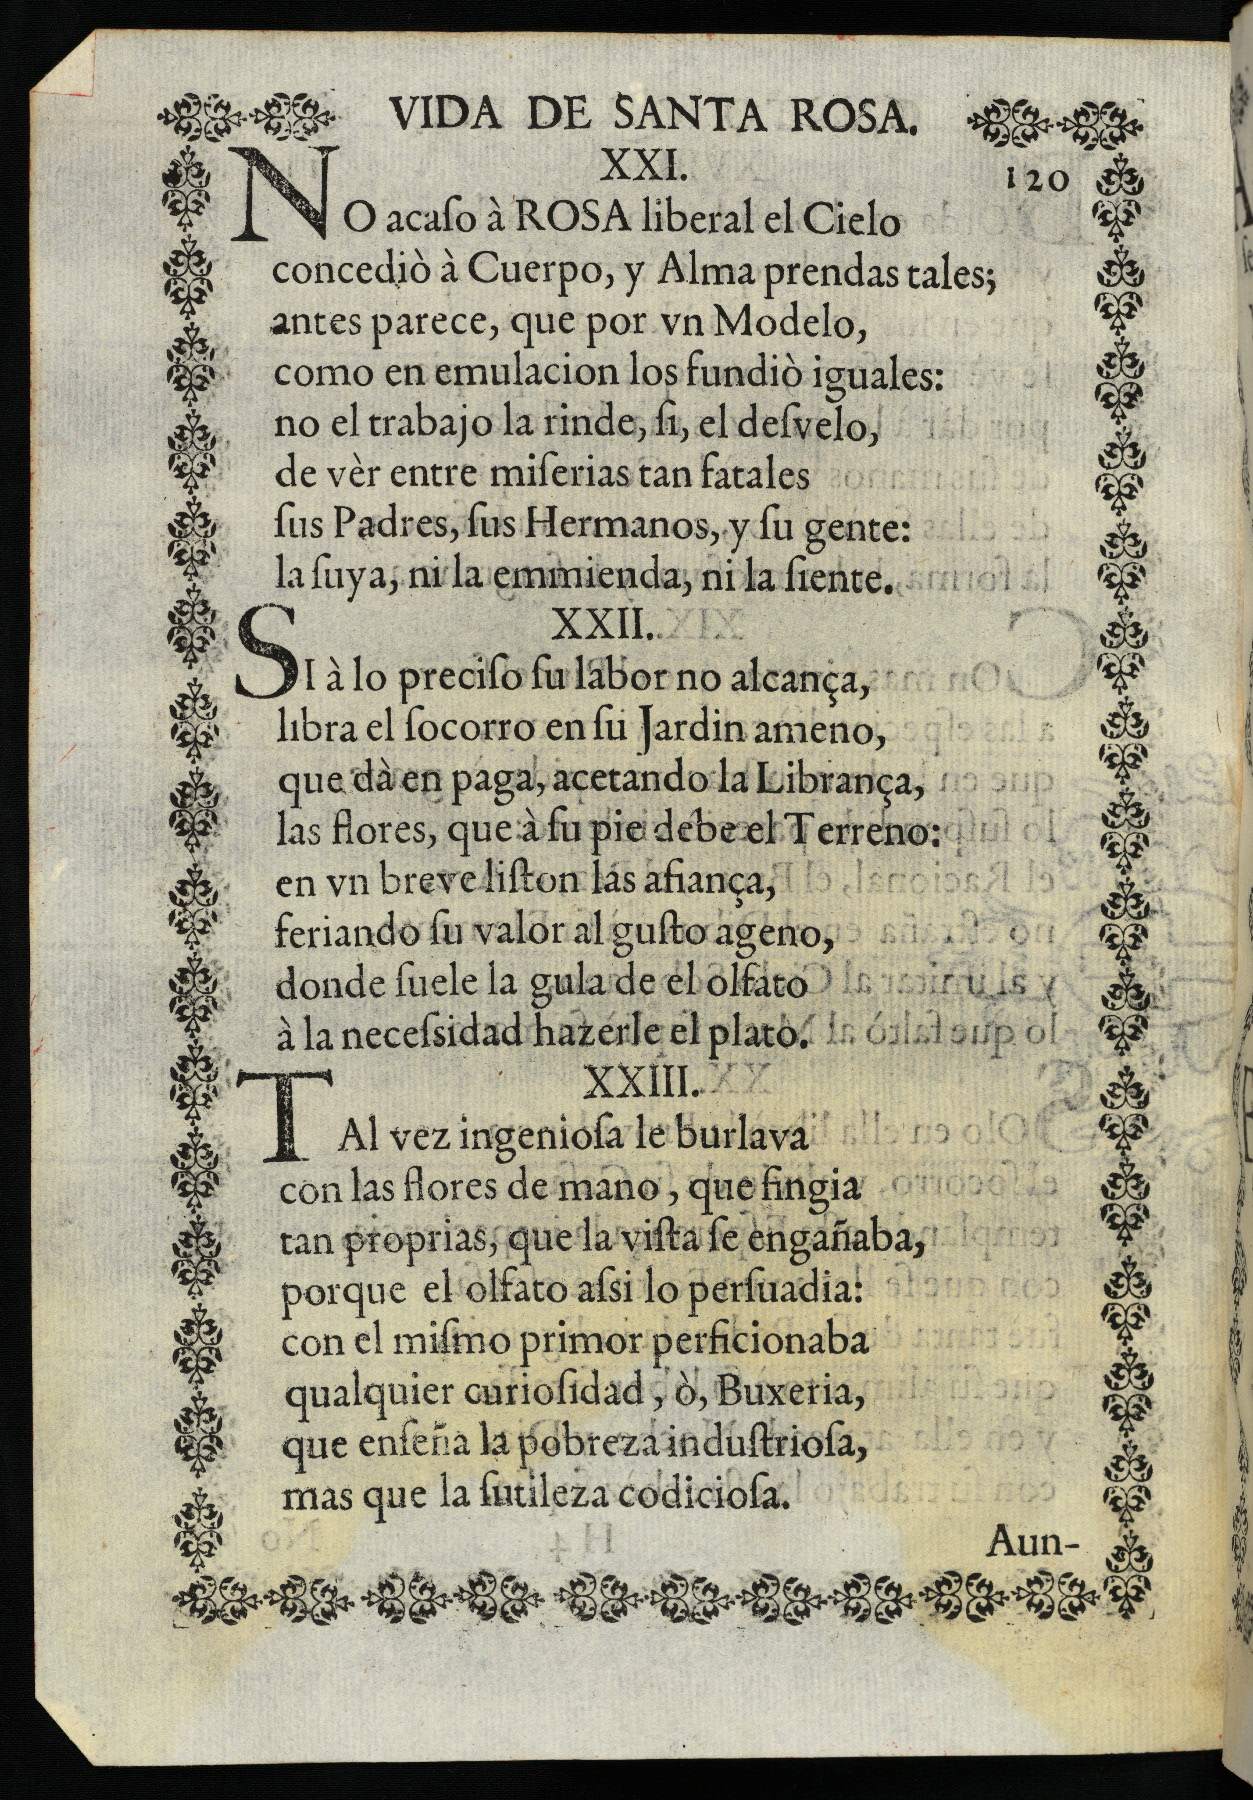 VIDA DE SANTA ROSA.
XXI.
120
NO acaſo à ROSA liberal el Cielo
concediò à Cuerpo, y Alma prendas tales;
antes parece, que por vn Modelo,
como en emulacion los fundiò iguales:
no el trabajo la rinde, ſi, el deſvelo,
de vèr entre miſerias tan fatales
ſus Padres, ſus Hermanos, y ſu gente:
la ſuya, ni la emmienda, ni la ſiente.
XXII.
SI à lo preciſo ſu labor no alcança,
libra el ſocorro en ſu Jardin ameno,
que dà en paga, acetando la Librança,
las flores, que à ſu pie debe el Terreno:
en vn breve liſton las afiança,
feriando ſu valor al guſto ageno,
donde ſuele la gula de el olfato
à la neceſsidad hazerle el plato.
XXIII.
TAl vez ingenioſa le burlava
con las flores de mano, que fingia
tan proprias, que la viſta ſe engañaba,
porque el olfato aſsi lo perſuadia:
con el miſmo primor perficionaba
qualquier curioſidad, ò, Buxeria,
que enſeña la pobreza induſtrioſa,
mas que la ſutileza codicioſa.
Aun-